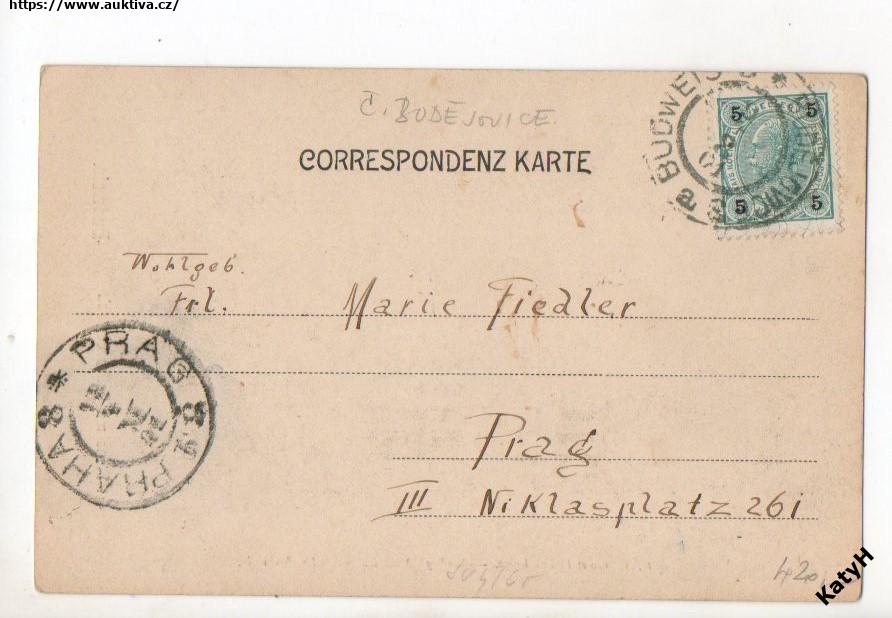 https://www.auktiva.cz/
Č. BUDĚJOVICE.
CORRESPONDENZ KARTE
BUDWEIS
5 5
5 5
Wohlgeb.
Frl. Marie Fiedler
PRAG 8
PRAHA 8
Prag
III Niklasplatz 26i
420
KatyH